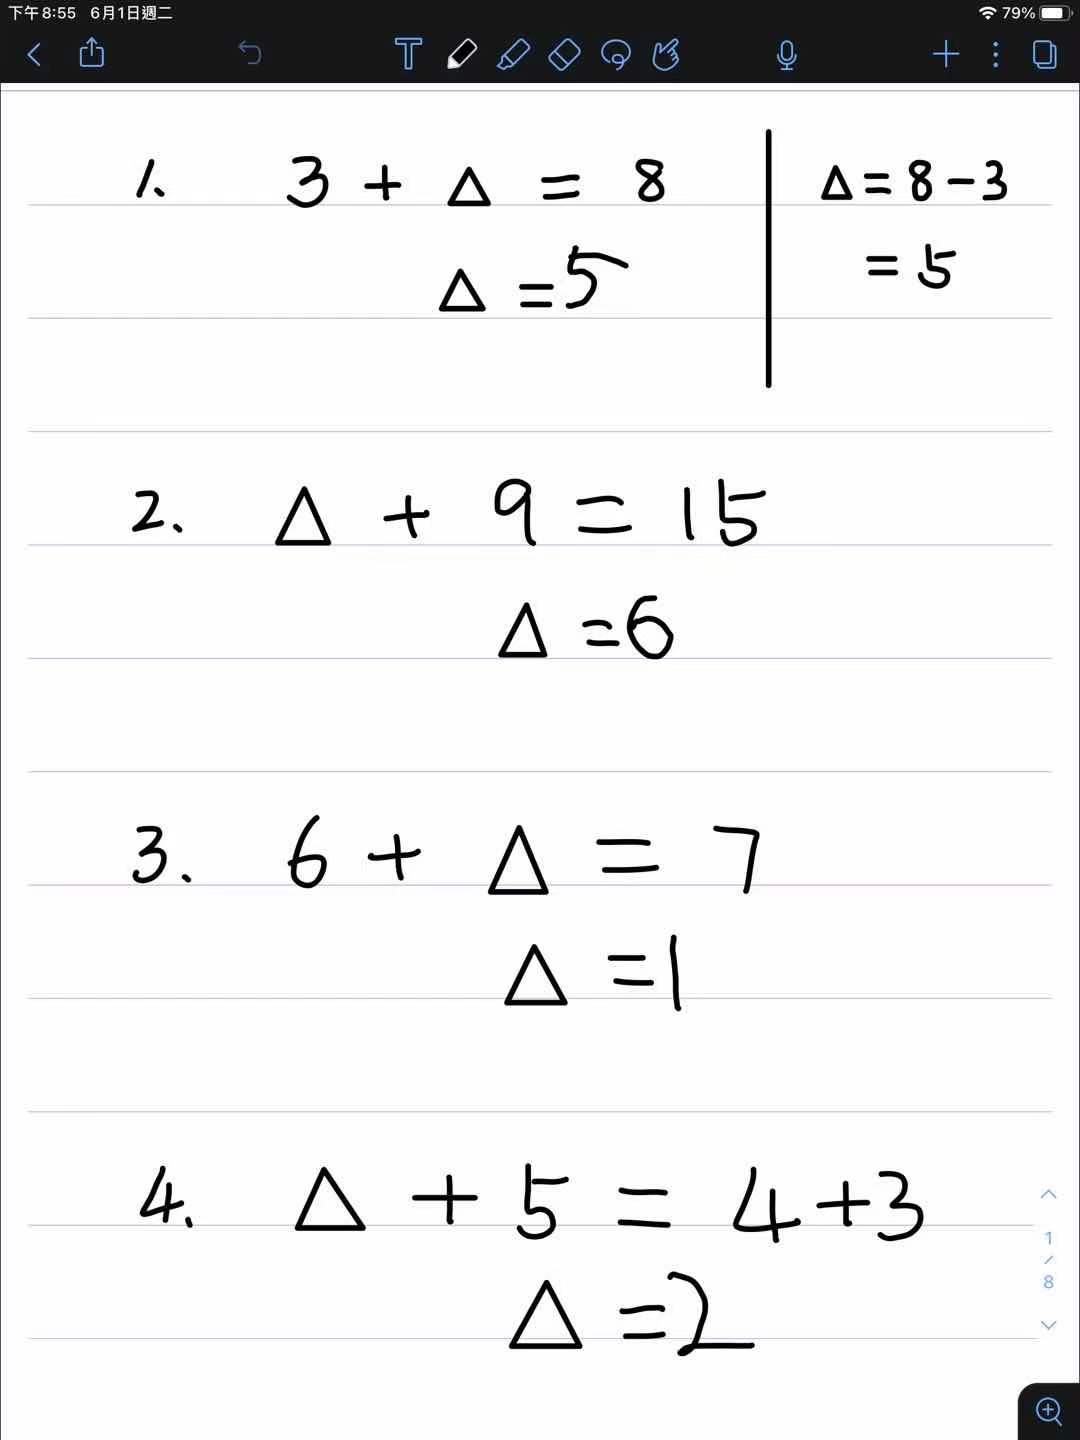 下午8:55 6月1日週二
79%
T
1. 3 + △ = 8
△ = 5
△ = 8 - 3
= 5
2. △ + 9 = 15
△ = 6
3. 6 + △ = 7
△ = 1
4. △ + 5 = 4 + 3
△ = 2
1
/
8